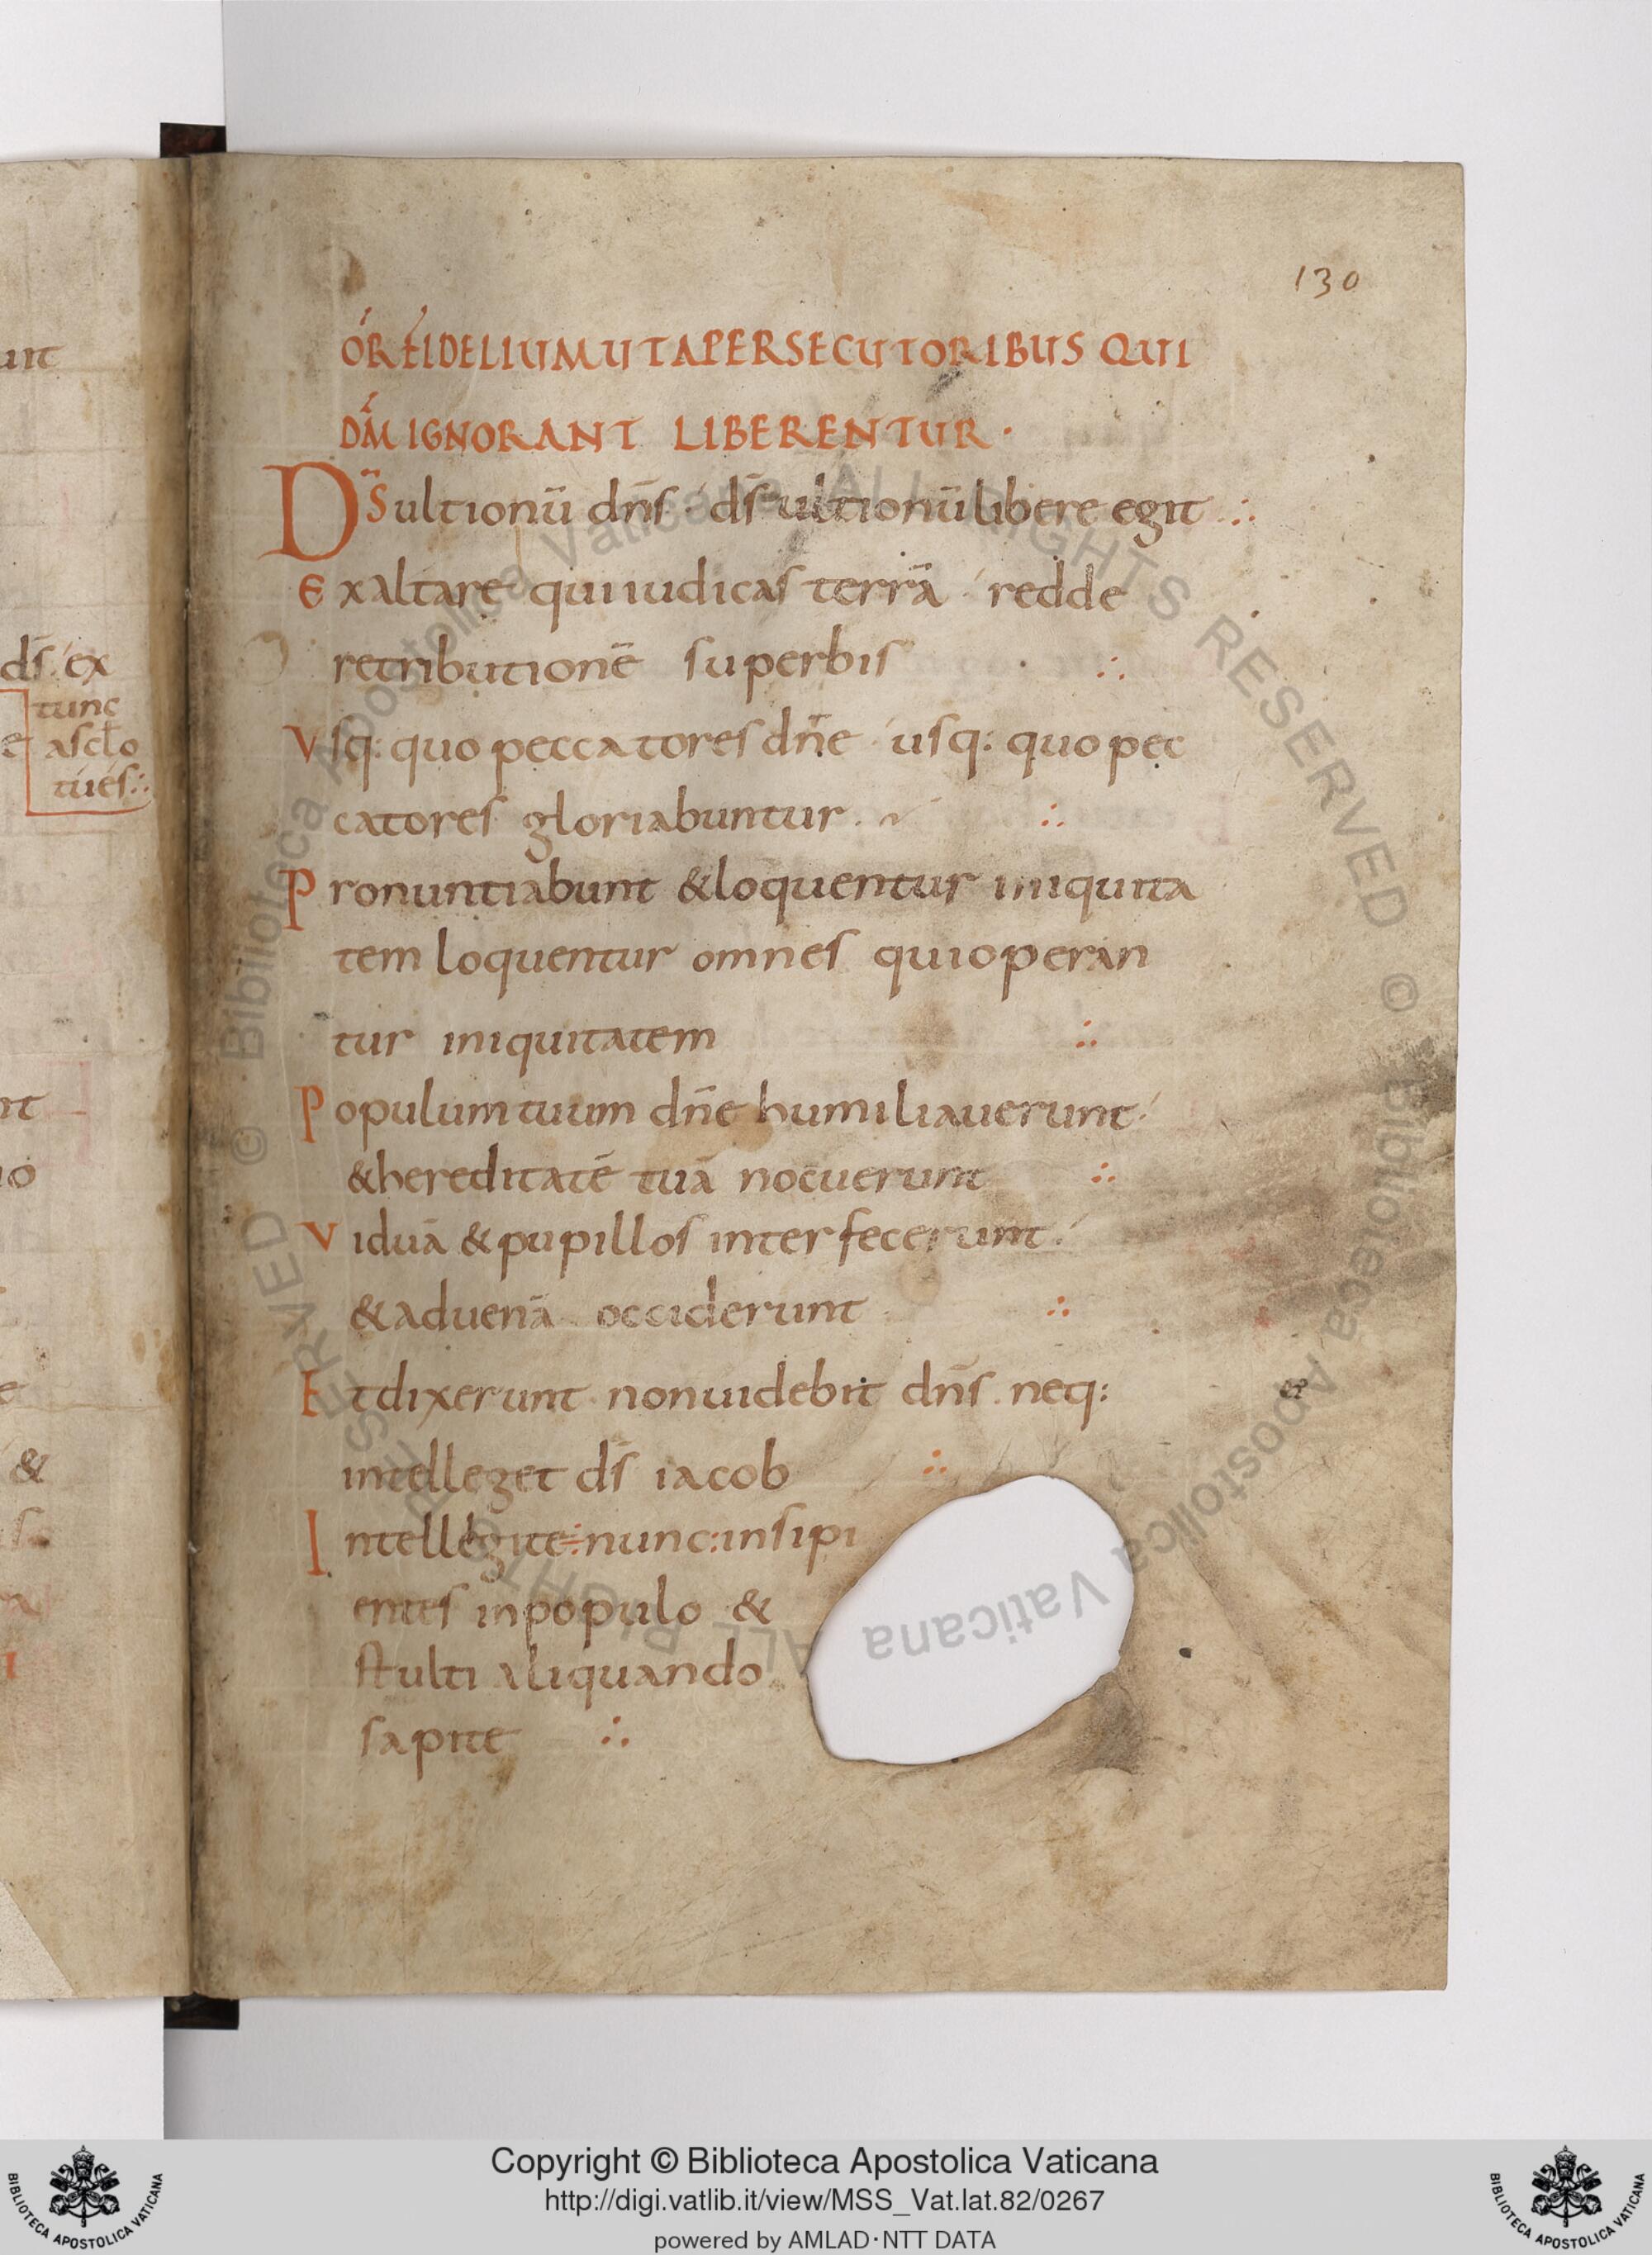 unt
ds ex
tunc
e ascło
tues ∴
nt
io
e
&
130
OR FIDELIUM UT A PERSECUTORIBUS QUI
DM̄ IGNORANT LIBERENTUR ·
DS̄ ultionū dn̄s · ds̄ ultionū libere egit ∴
Exaltare qui iudicas terrā · redde
retributionē superbis ∴
Vsq: quo peccatores dn̄e · usq: quo pec
catores gloriabuntur ∴
Pronuntiabunt & loquentur iniquita
tem loquentur omnes qui operan
tur iniquitatem ∴
Populum tuum dn̄e humiliauerunt
& hereditatē tuā nocuerunt ∴
Viduā & pupillos interfecerunt
& aduenā occiderunt ∴
Et dixerunt · non uidebit dn̄s . neq:
intelleget ds̄ iacob ∴
Intellegite ÷ nunc : insipi
entes in populo &
stulti aliquando
sapite ∴
© Biblioteca Apostolica Vaticana ALL RIGHTS RESERVED
© Biblioteca Apostolica Vaticana ALL RIGHTS RESERVED
Copyright © Biblioteca Apostolica Vaticana
http://digi.vatlib.it/view/MSS_Vat.lat.82/0267
powered by AMLAD·NTT DATA
BIBLIOTECA APOSTOLICA VATICANA
BIBLIOTECA APOSTOLICA VATICANA